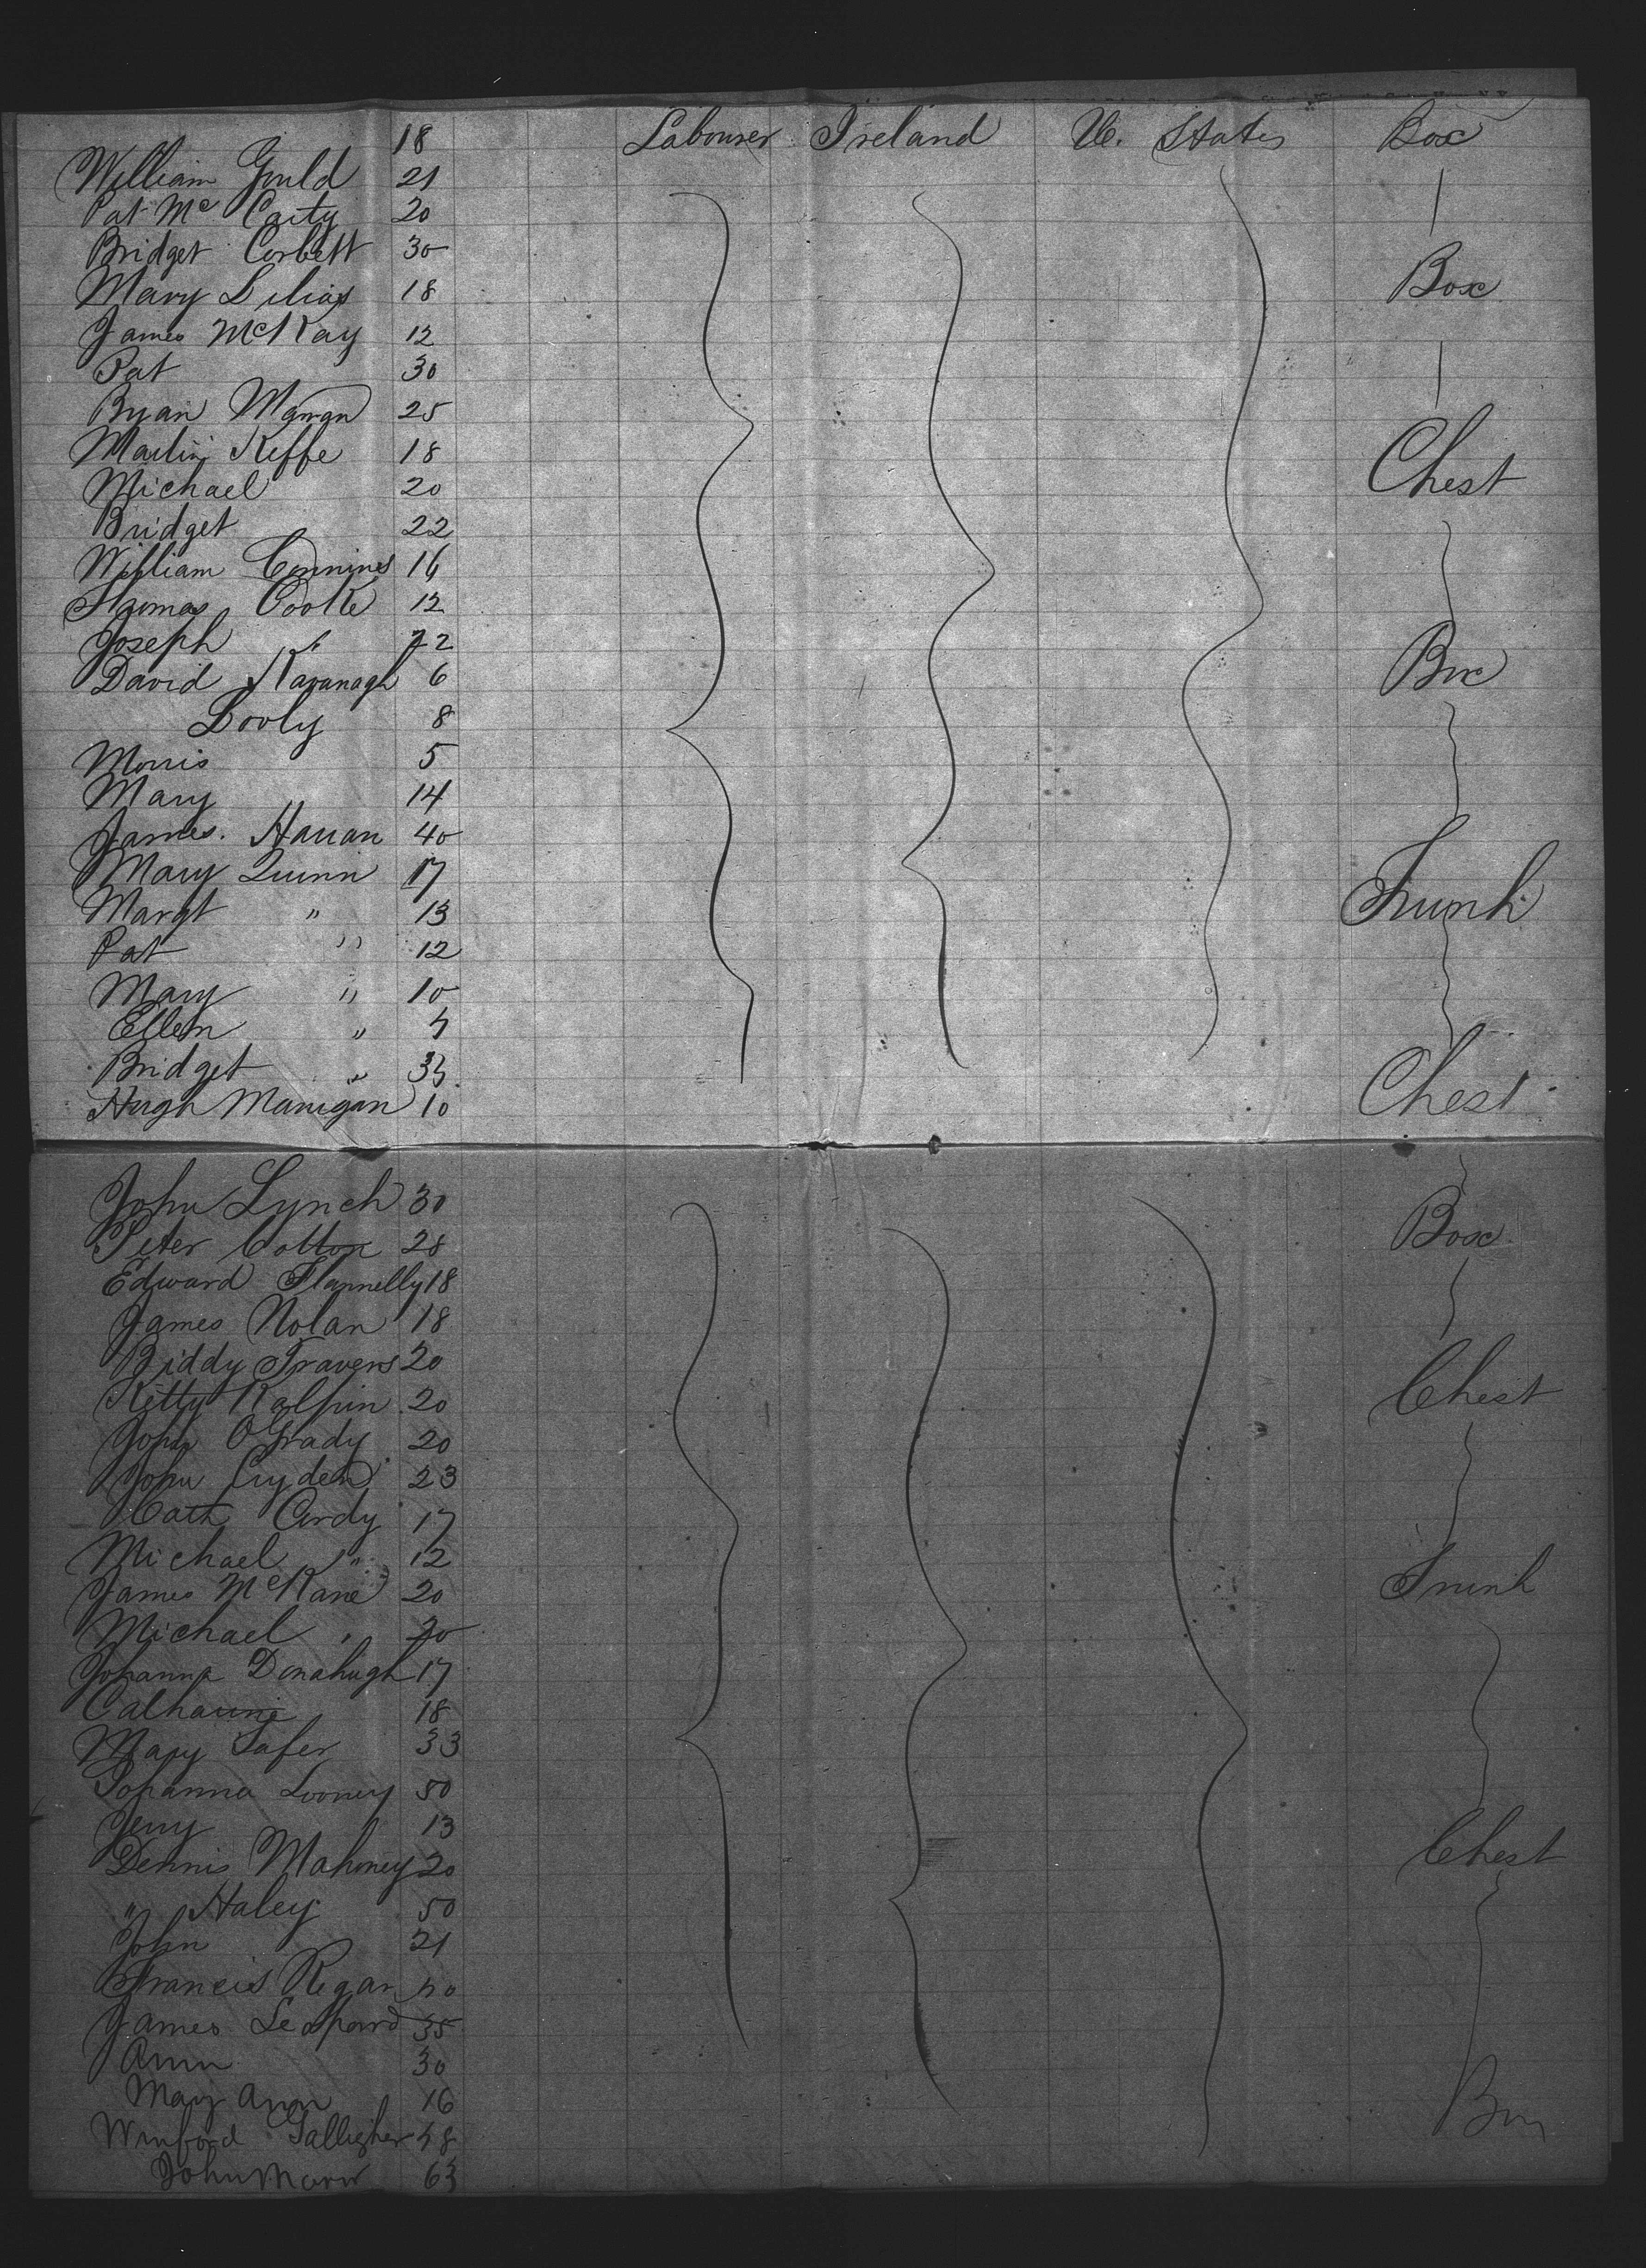 18 Labourer Ireland U. States Box
William Gould 21
Pat Mc Carty 20
Bridget Corbett 30
Mary 18 Box
James McKay 12
Pat 30
Ryan 25
Martin Keffe 18
Michael 20 Chest
Bridget 22
William Commins 16
Thomas Cooke 12
Joseph " 22
David Kavanagh 6 Box
Dooly 8
Morris 5
Mary 14
James. Hanan 40
Mary Quinn 17
Margt " 13 Trunk
Pat " 12
Mary " 10
Ellen "
Bridget "
Hugh Manigan 10 Chest
John Lynch 30
Peter Cotton 28 Box
Edward Flannelly 18
James Nolan 18
Biddy Travers 20
Kitty Kalpin 20 Chest
John OGrady 20
John Cryden 23
Cath Cardy 17
Michael " 12
James McKane 20 Trunk
Michael " 20
Johanna Donahugh 17
Catharine 18
Mary Tafer 33
Johanna Looney 50
Jerry 13
Dennis Mahoney 20 Chest
" Haley 50
John 21
Francis Regan
James Leopard 35
Ann 30
Mary Ann 16 Box
Winford Galligher
John 63